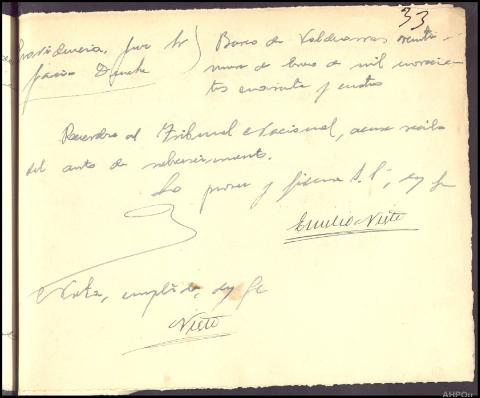 33
Providencia, Juez Sr
Barco de Valdeorras veinti-
nueve de Enero de mil novecien-
tos cuarenta y cuatro
al Tribunal Nacional, acuse recibo
del auto de sobreseimiento.
Lo provee y firma S.Sª, doy fe
Emilio Nieto
Nota, cumplido, doy fe
Nieto
AHPOu